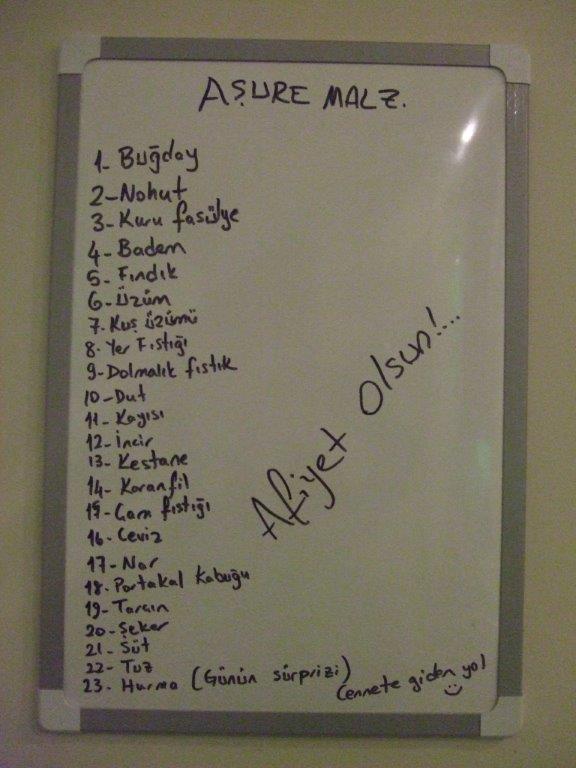 AŞURE MALZ.
1- Buğday
2- Nohut
3- Kuru fasülye
4- Badem
5- Fındık
6- Üzüm
7- Kuş üzümü
8- Yer Fıstığı
9- Dolmalık fıstık
10- Dut
11- Kayısı
12- İncir
13- Kestane
14- Karanfil
15- Çam fıstığı
16- Ceviz
17- Nar
18- Portakal Kabuğu
19- Tarçın
20- Şeker
21- Süt
22- Tuz
23- Hurma (Günün sürprizi)
Cennete giden yol
Afiyet Olsun!...